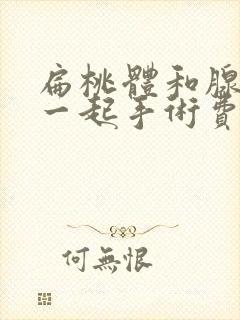 扁桃體和腺
一起手術費
何無恨